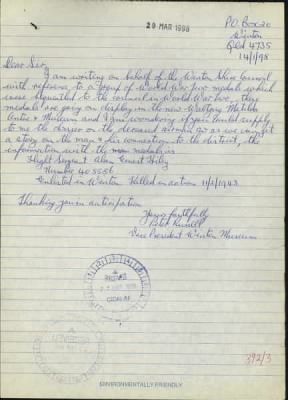 29 MAR 1998
P.O. Box 20
Winton
Qld 4735
14/1/98
Dear Sir,
I am writing on behalf of the Winton Shire Council
with reference to a group of World War Two medals which
were bequeathed to the council in World War two, these
medals are going on display in the new Waltzing Matilda
Centre & Museum and I am wondering if you could supply
to me the on the deceased airman as we want
a story on the man & his connection to the district, the
information with the medals is
Flight Sergeant Alan Ernest
Number 405556
Enlisted in Winton Killed in action 11/2/1943
Thanking you in anticipation
Yours faithfully
Vice President Winton Museum
392/3
ENVIRONMENTALLY FRIENDLY